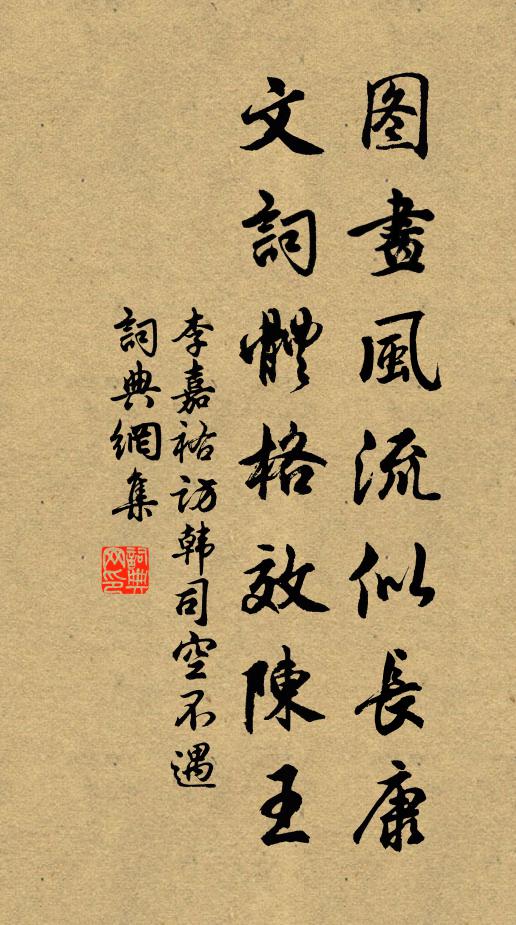 图畫風流似長康
文詞體格效陳王
李嘉祐访韩司空不遇
詞典網集
詞典网印